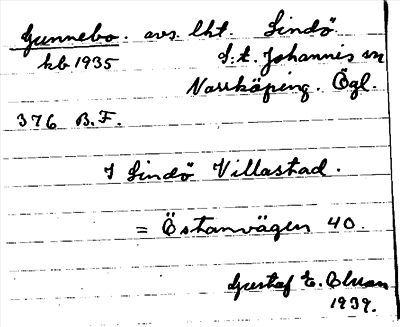 Gunnebo. avs. lht. Lindö
kb 1935 S:t. Johannis sn
Norrköping. Ögl.
376 B.F.
I Lindö Villastad.
= Östanvägen 40.
Gustaf E.
1939.